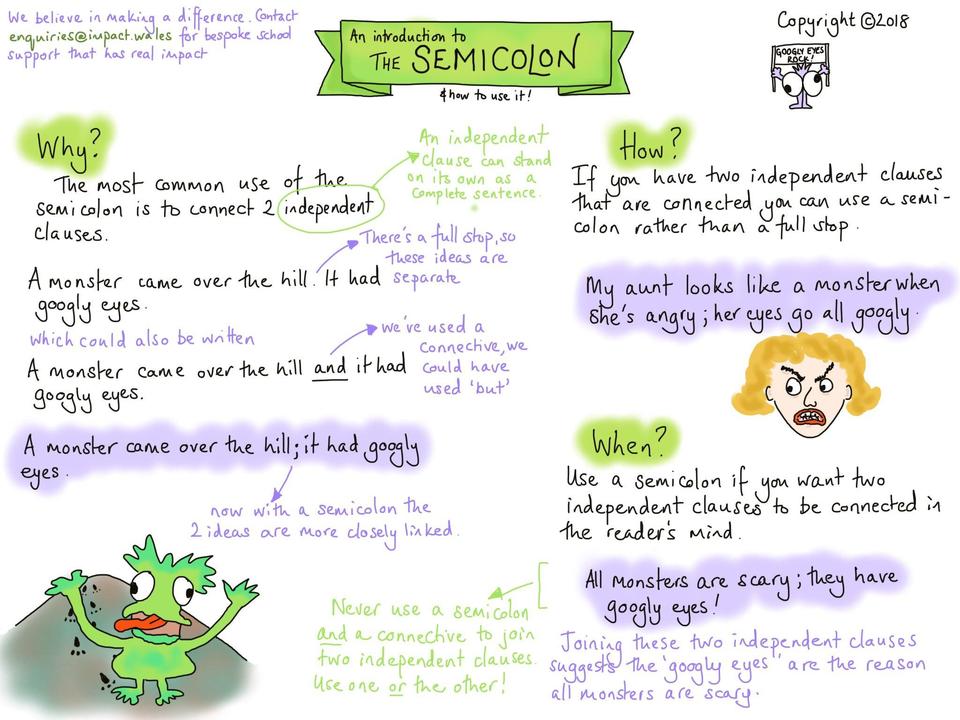 We believe in making a difference. Contact
enquiries@impact.wales for bespoke school
support that has real impact
An introduction to
THE SEMICOLON
& how to use it!
Copyright ©2018
GOOGLY EYES
ROCK!
Why?
The most common use of the
semicolon is to connect 2 independent
clauses.
An independent
clause can stand
on its own as a
complete sentence.
A monster came over the hill. It had
googly eyes.
There's a full stop, so
these ideas are
separate
which could also be written
A monster came over the hill and it had
googly eyes.
we've used a
connective, we
could have
used 'but'
A monster came over the hill; it had googly
eyes.
now with a semicolon the
2 ideas are more closely linked.
How?
If you have two independent clauses
that are connected you can use a semi-
colon rather than a full stop.
My aunt looks like a monster when
she's angry; her eyes go all googly.
When?
Use a semicolon if you want two
independent clauses to be connected in
the reader's mind.
All monsters are scary; they have
googly eyes!
Never use a semicolon
and a connective to join
two independent clauses.
Use one or the other!
Joining these two independent clauses
suggests the 'googly eyes' are the reason
all monsters are scary.